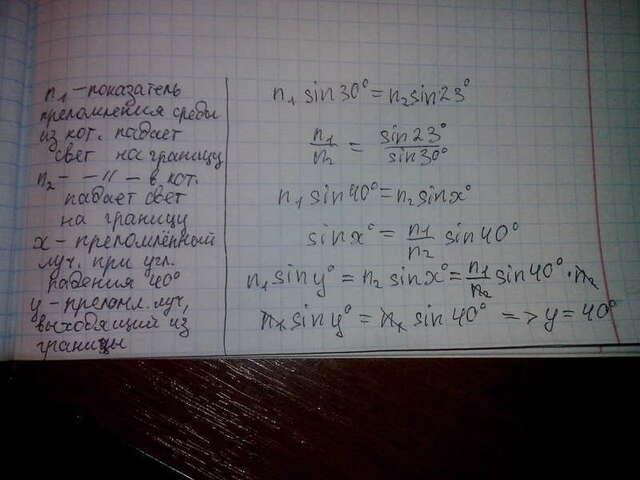 n₁ – показатель
преломления среды
из кот. падает
свет на границу
n₂ – –//– в кот.
падает свет
на границу
x – преломлённый
луч, при угл.
падения 40°
y – преломл. луч,
выходящий из
границы
n₁ sin30° = n₂ sin23°
n₁/n₂ = sin23°/sin30°
n₁ sin40° = n₂ sinx°
sinx° = n₁/n₂ sin40°
n₁ siny° = n₂ sinx° = n₁/n₂ sin40° · n₂
n₁ siny° = n₁ sin40° => y = 40°